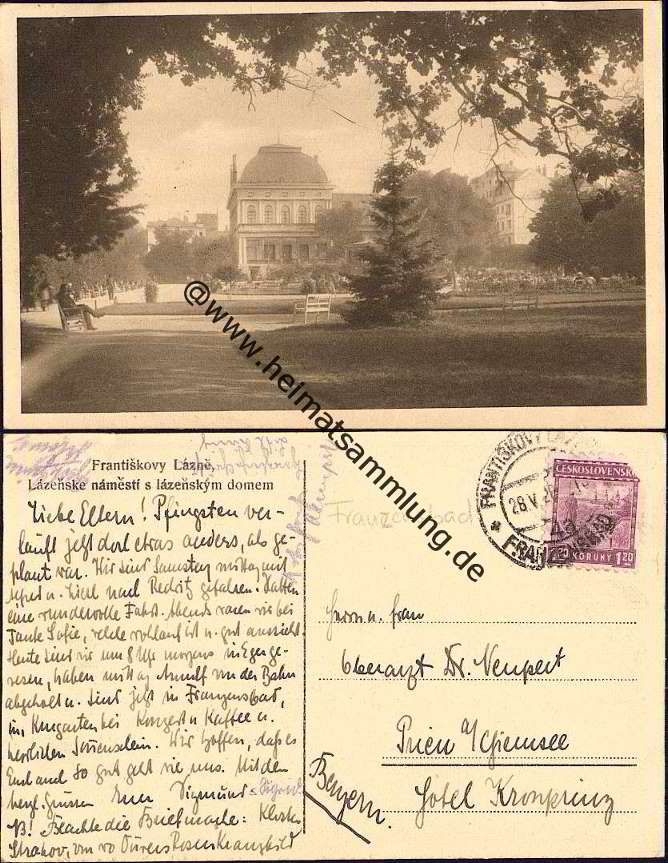 @www.heimatsammlung.de
Františkovy Lázně,
Lázeňské náměstí s lázeňským domem
Liebe Eltern! Pfingsten ver-
läuft jetzt doch etwas anders, als ge-
plant war. Wir sind Samstag mittag mit
u. nach Redwitz gefahren. Hatten
eine wundervolle Fahrt. Abends waren wir bei
Tante Sofie, welche wohlauf ist u. gut aussieht.
Heute sind wir um 8 Uhr morgens in Eger ge-
wesen, haben mittag Arnulf von der Bahn
abgeholt u. sind jetzt in Franzensbad,
im Kurgarten bei Konzert u. Kaffee u.
herrlichem Sonnenschein. Wir hoffen, daß es
Euch auch so gut geht wie uns. Mit den
herzl. Grüssen Euer Sigmund
NB! Beachte die Briefmarke: Kloster
Strahov, von wo Dürers Rosenkranzbild
Franzensbad
FRANTIŠKOVY LÁZ
28.V.2
FRANZENSBAD
ČESKOSLOVENSK
1.20 KORUNY 1.20
Herrn u. Frau
Oberarzt Dr. Neupert
Prien a/Chiemsee
Hotel Kronprinz
Bayern.